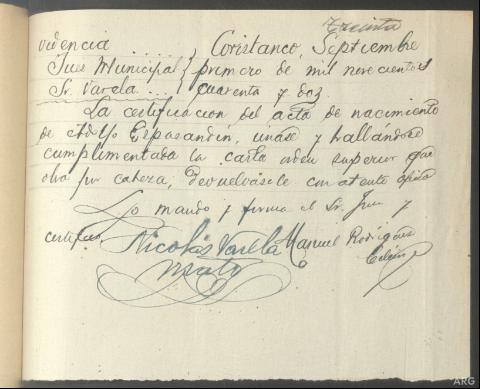 Treinta
videncia ....., Coristanco, Septiembre
Juez Municipal } primero de mil novecientos
Sr. Varela ... } cuarenta y dos
La certificación del acta de nacimiento
de Adolfo Esparandin, únase y hallandose
cumplimentada la carta orden superior que
obra por cabeza, devuelvásele con atento oficio
Lo mando y firma el Sr. Juez y
certifico.
Nicolás Varela Manuel Rodríguez
ARG